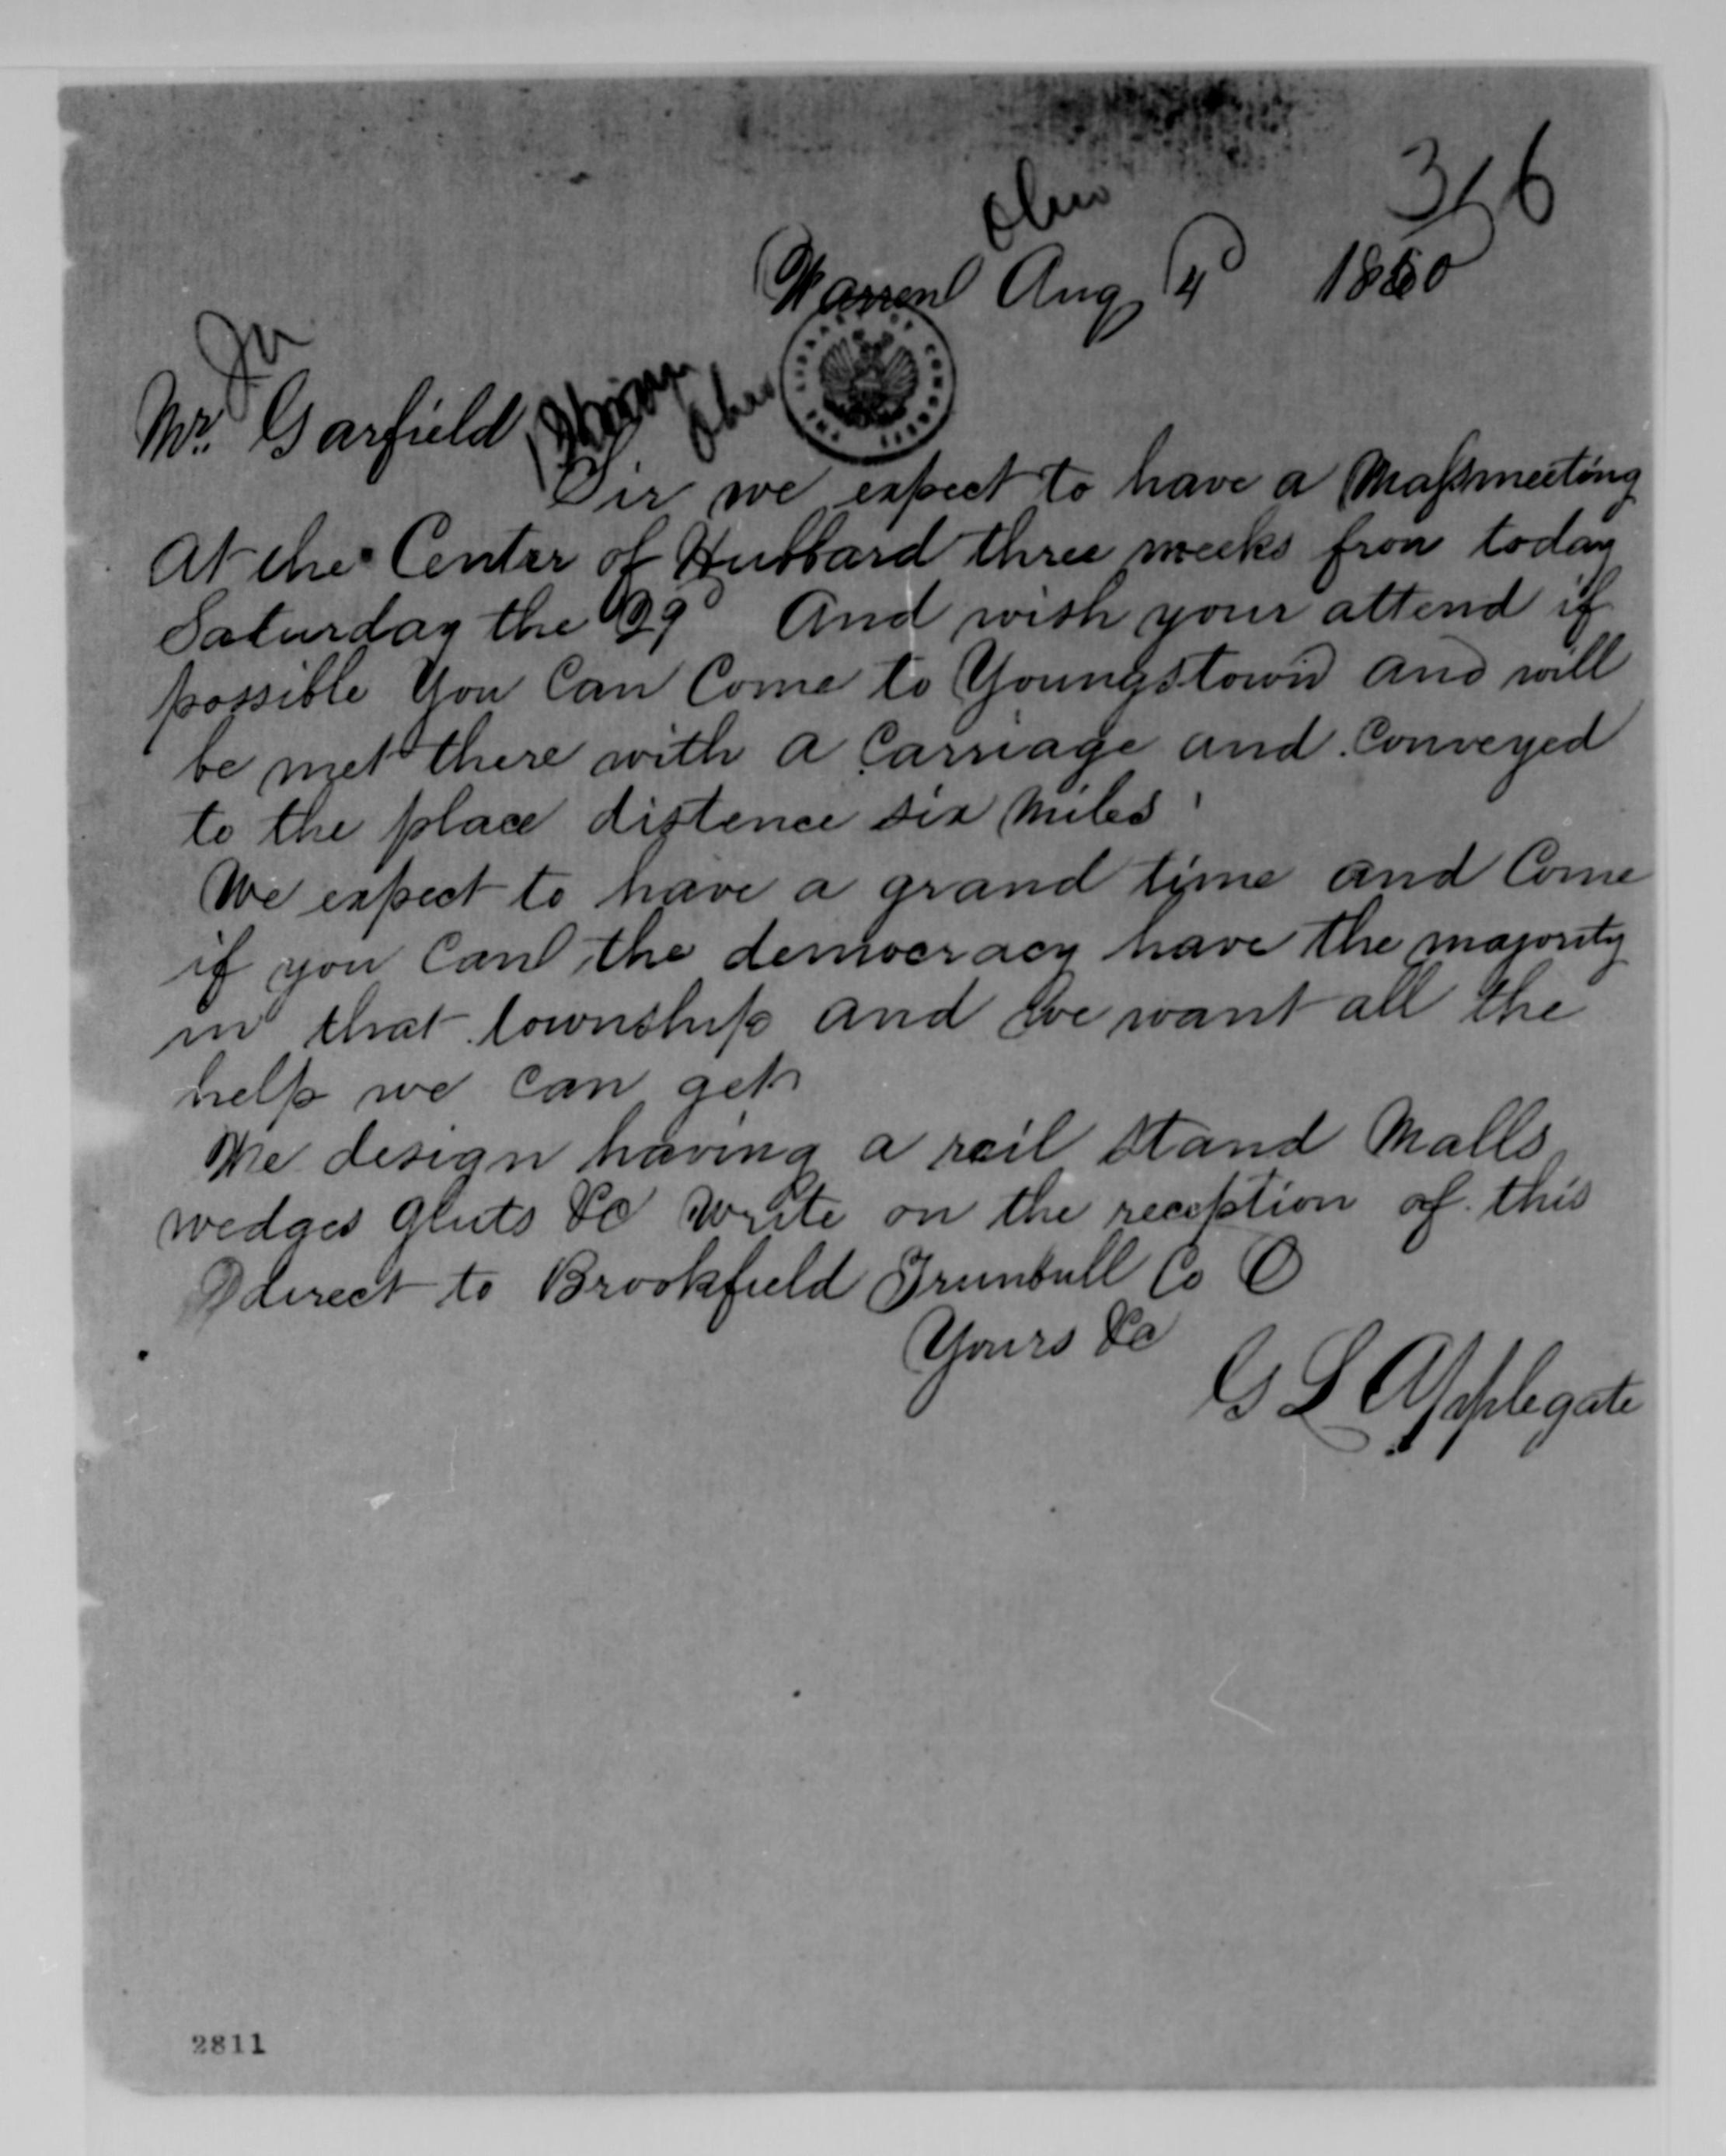 316
Ohio
Warren Aug 4d 1860
Ja
Mr. Garfield
Hiram
Ohio
THE LIBRARY OF CONGRESS
Sir we expect to have a Massmeeting
At the Center of Hubbard three weeks fron today
Saturday the 29d And wish your attend if
possible You Can Come to Youngstown and will
be met there with a Carriage and Conveyed
to the place distence six Miles
We expect to have a grand time and Come
if you Can the democracy have the majority
in that township and we want all the
help we can get
We design having a rail stand Malls
wedges gluts &c Write on the reception of this
direct to Brookfield Trumbull Co O
Yours &c
G L Applegate
2811